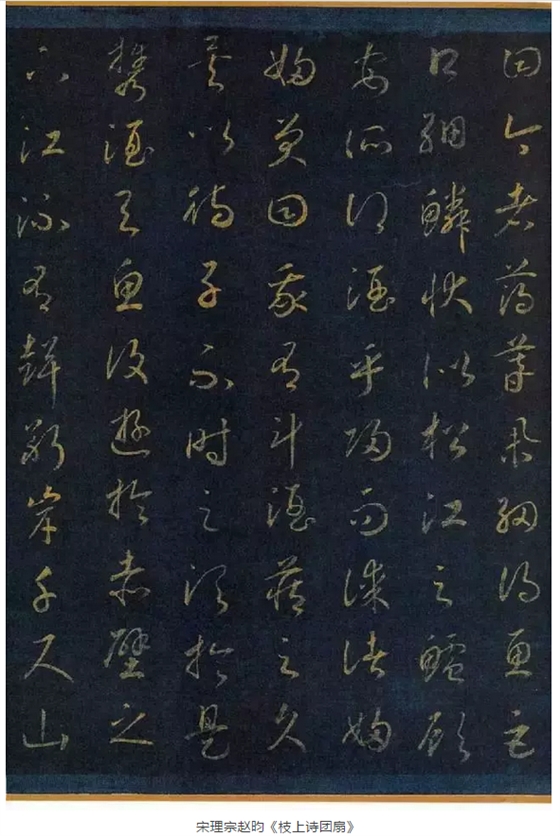 曰今者薄暮舉網得魚巨
口細鱗狀似松江之鱸顧
安所得酒乎歸而謀諸婦
婦笑曰我有斗酒藏之久
矣以待子不時之須於是
攜酒與魚復遊於赤壁之
下江流有聲斷岸千尺山
宋理宗赵昀《枝上诗团扇》